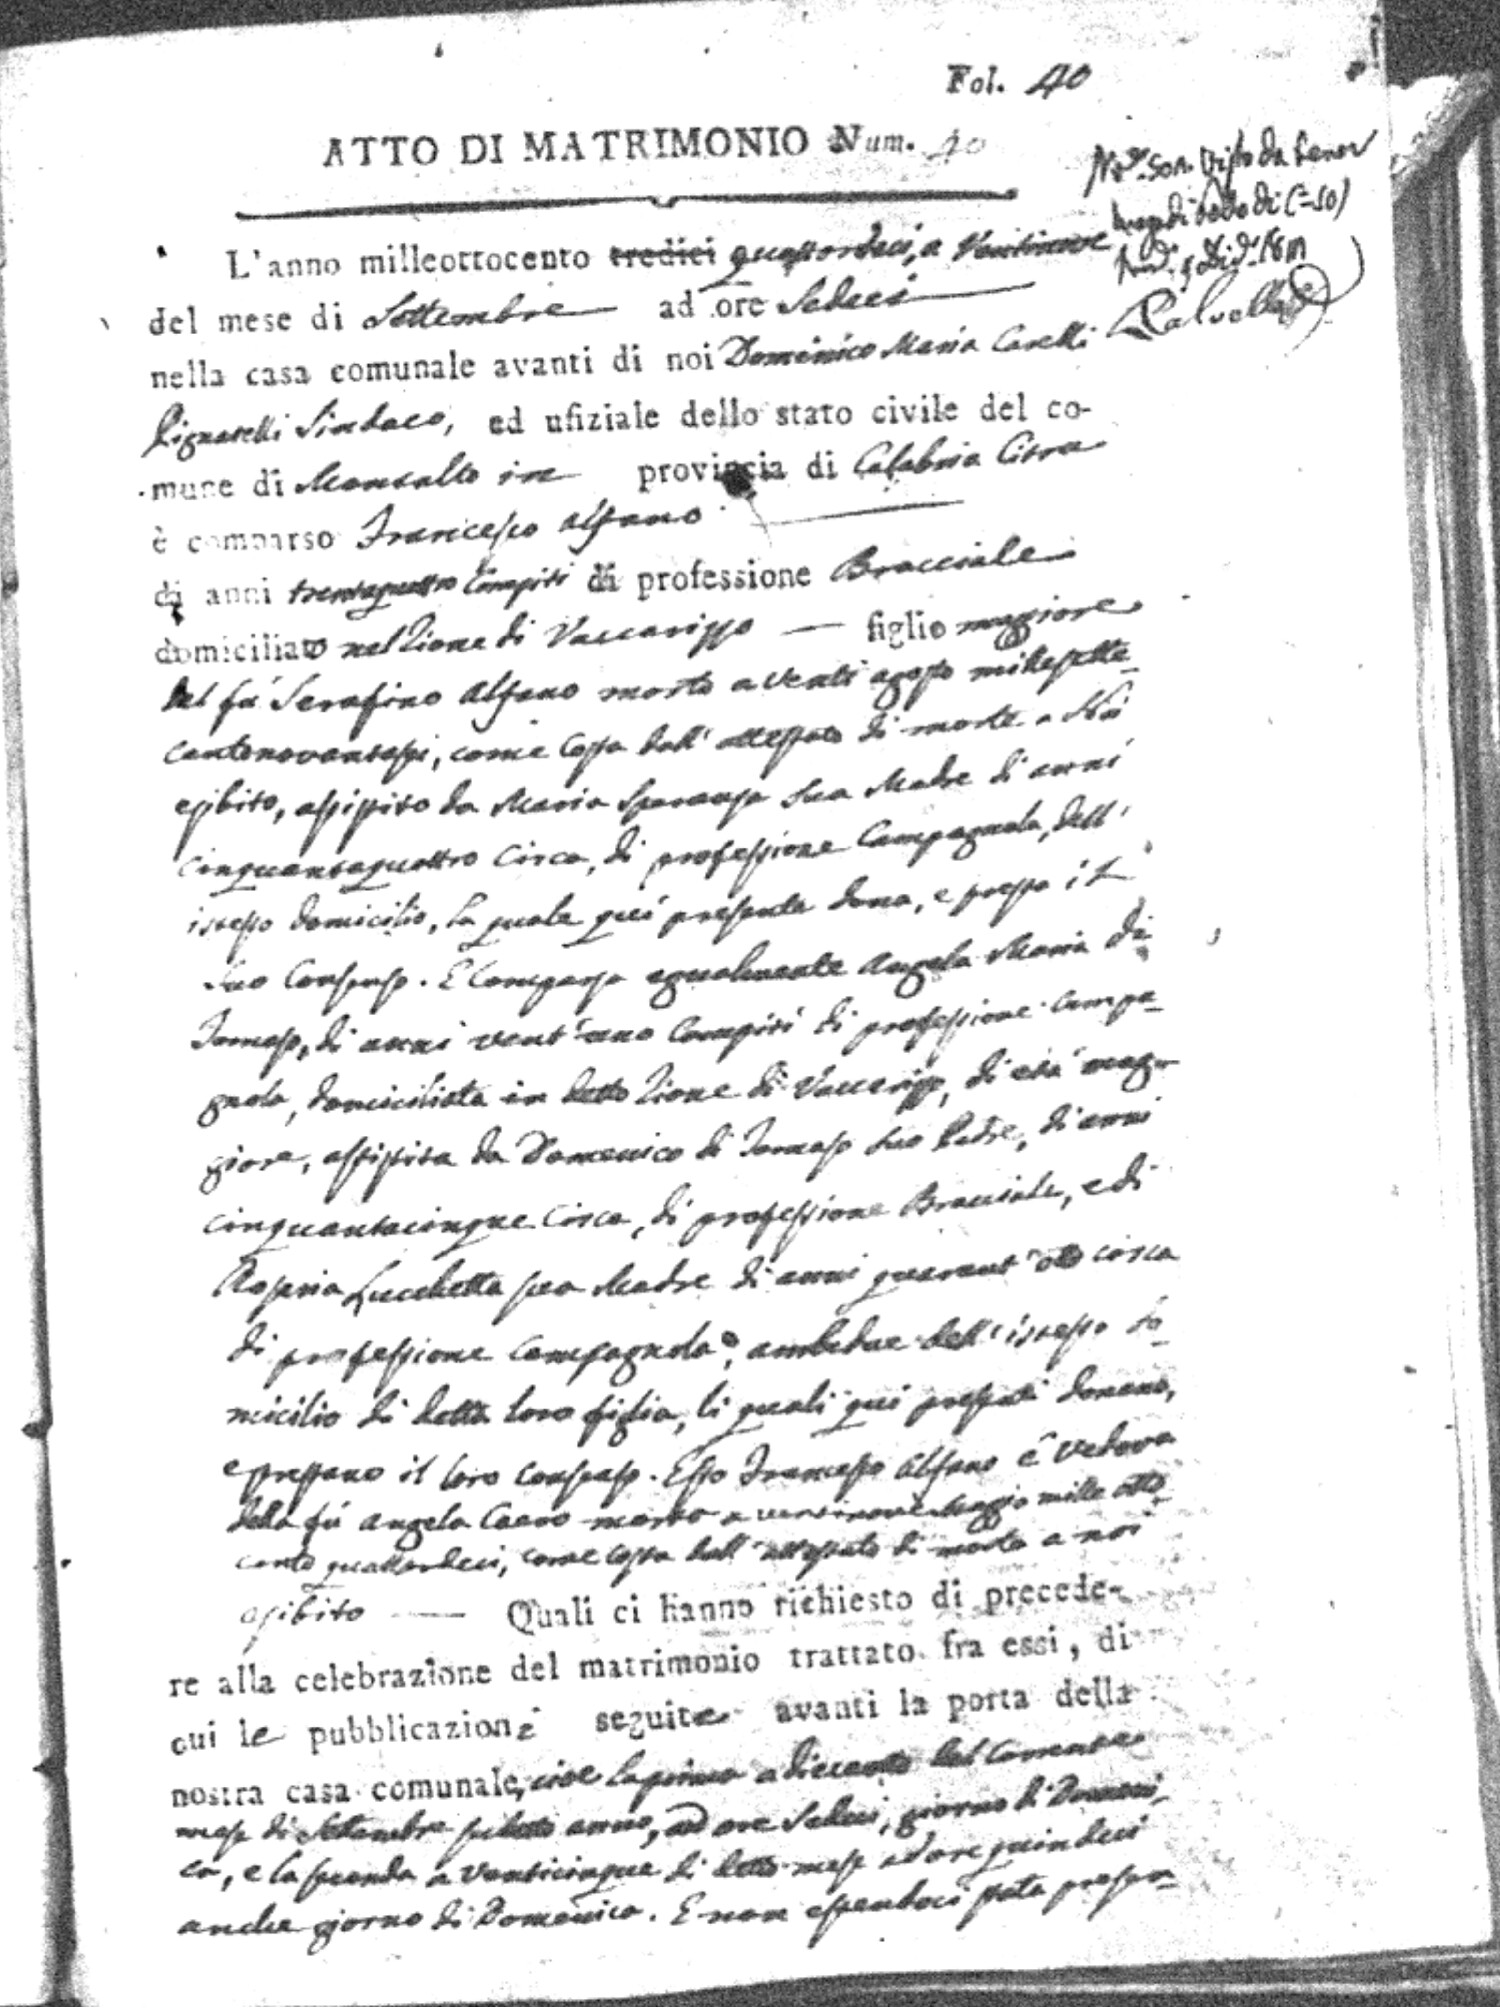 Fol. 40
ATTO DI MATRIMONIO Num. 40
L'anno milleottocento tredici quattordeci, a Ventinove
del mese di Settembre ad ore Sedeci
nella casa comunale avanti di noi Domenico Maria Carelli
Pignatelli Sindaco, ed ufiziale dello stato civile del co-
mune di Montalto in provincia di Calabria Citra
è comparso Francesco Alfano
di anni trentaquattro Compiti di professione Bracciale
domiciliato nel Rione di Vaccarizzo figlio magiore
del fú Serafino Alfano morto a venti agosto millesette-
centonovantasei, come costa dall' attestato di morte a Noi
esibito, assistito da Maria Speranza sua Madre di anni
Cinquantaquattro Circa, di professione Campagnola, dell'
istesso domicilio, la quale quí presente dona, e presta il
suo Consenso. E Comparsa egualmente Angela Maria di
Tomaso, di anni vent'uno Compiti di professione Campa-
gnola, domiciliata in detto Rione di Vaccarizzo, di etá mag-
giore, assistita da Domenico di Tomaso suo Padre, di anni
cinquantacinque Circa, di professione Bracciale, e di
Rosaria Lucchetta sua Madre di anni quarant'otto circa
di professione Campagnola, ambedue dell'istesso do-
micilio di detta loro figlia, li quali qui presenti donano,
e prestano il loro consenso. Esso Francesco Alfano è Vedovo
della fú Angela morta a ventinove Maggio mille otto-
cento quattordeci, come costa dall' attestato di morte a noi
esibito Quali ci hanno richiesto di precede-
re alla celebrazione del matrimonio trattato fra essi, di
cui le pubblicazioni seguite avanti la porta della
nostra casa comunale, cioe la prima a dieciotto del Corrente
mese di Settembre sudetto anno, ad ore Sedeci, giorno di Domeni-
ca, e la seconda a Venticinque di detto mese ad ore quindeci
anche giorno di Domenica. E non essendoci stata prespo-